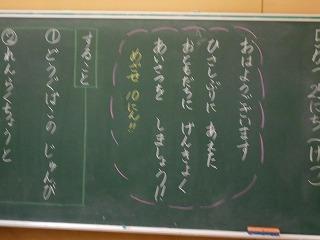 おはようございます
ひさしぶりに あえた
おともだちに げんきよく
あいさつを しましょう!!
めざせ 10にん!!
すること
① どうぐばこの じゅんび
② れんらくちょうと